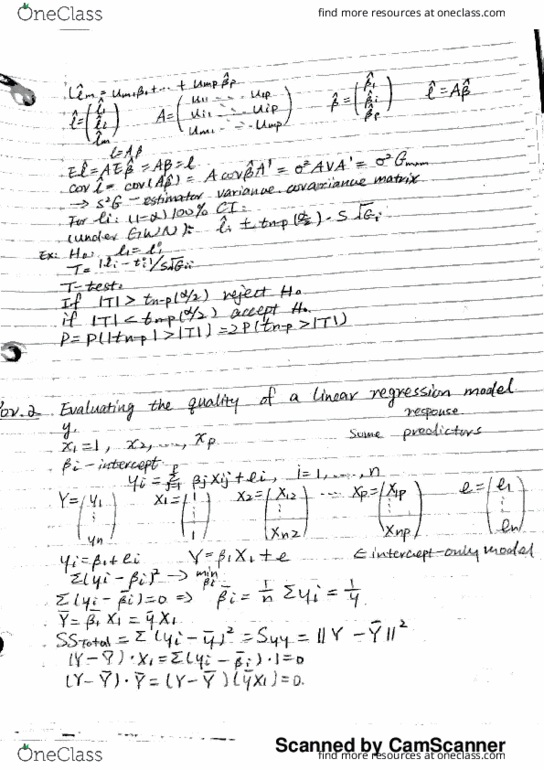 OneClass
find more resources at oneclass.com
l̂m = um1β̂1 + ... + umpβ̂p
l̂ = (l̂1 l̂i l̂m) A = (u11 ... u1p ui1 ... uip um1 ... ump) β̂ = (β̂1 β̂i β̂p) l̂ = Aβ̂
l = Aβ
El̂ = AEβ̂ = Aβ = l
cov l̂ = cov(Aβ̂) = A cov β̂ A' = σ²AVA' = σ²Gm×m
→ S²G - estimator variance covariance matrix
For li: (1-α)100% CI:
(under GWN): l̂i ± tn-p(α/2) · S√Gii
Ex: H0: li = li°
T = |li - li|/S√Gii
T-test:
If |T| > tn-p(α/2) reject H0
if |T| < tn-p(α/2) accept H0.
P = P(|tn-p| > |T|) = 2P(tn-p > |T|)
ov.2 Evaluating the quality of a linear regression model
y, response
x1 = 1, x2, ..., xp some predictors
βi - intercept
yi = Σ βj xij + ei, i = 1, ..., n
Y = (y1 ⋮ yn) X1 = (1 ⋮ 1) X2 = (X12 ⋮ Xn2) ... Xp = (X1p ⋮ Xnp) e = (e1 ⋮ en)
yi = β1 + ei Y = β1X1 + e ∈ intercept-only model
Σ(yi - βi)² → min βi
Σ(yi - β̄i) = 0 ⇒ β̄i = 1/n Σyi = ȳ
Ȳ = β1 X1 = ȳX1
SSTotal = Σ(yi - ȳ)² = Syy = ||Y - Ȳ||²
(Y - Ȳ) · X1 = Σ(yi - β̄i) · 1 = 0
(Y - Ȳ) · Ȳ = (Y - Ȳ)(ȳX1) = 0.
Scanned by CamScanner
OneClass
find more resources at oneclass.com